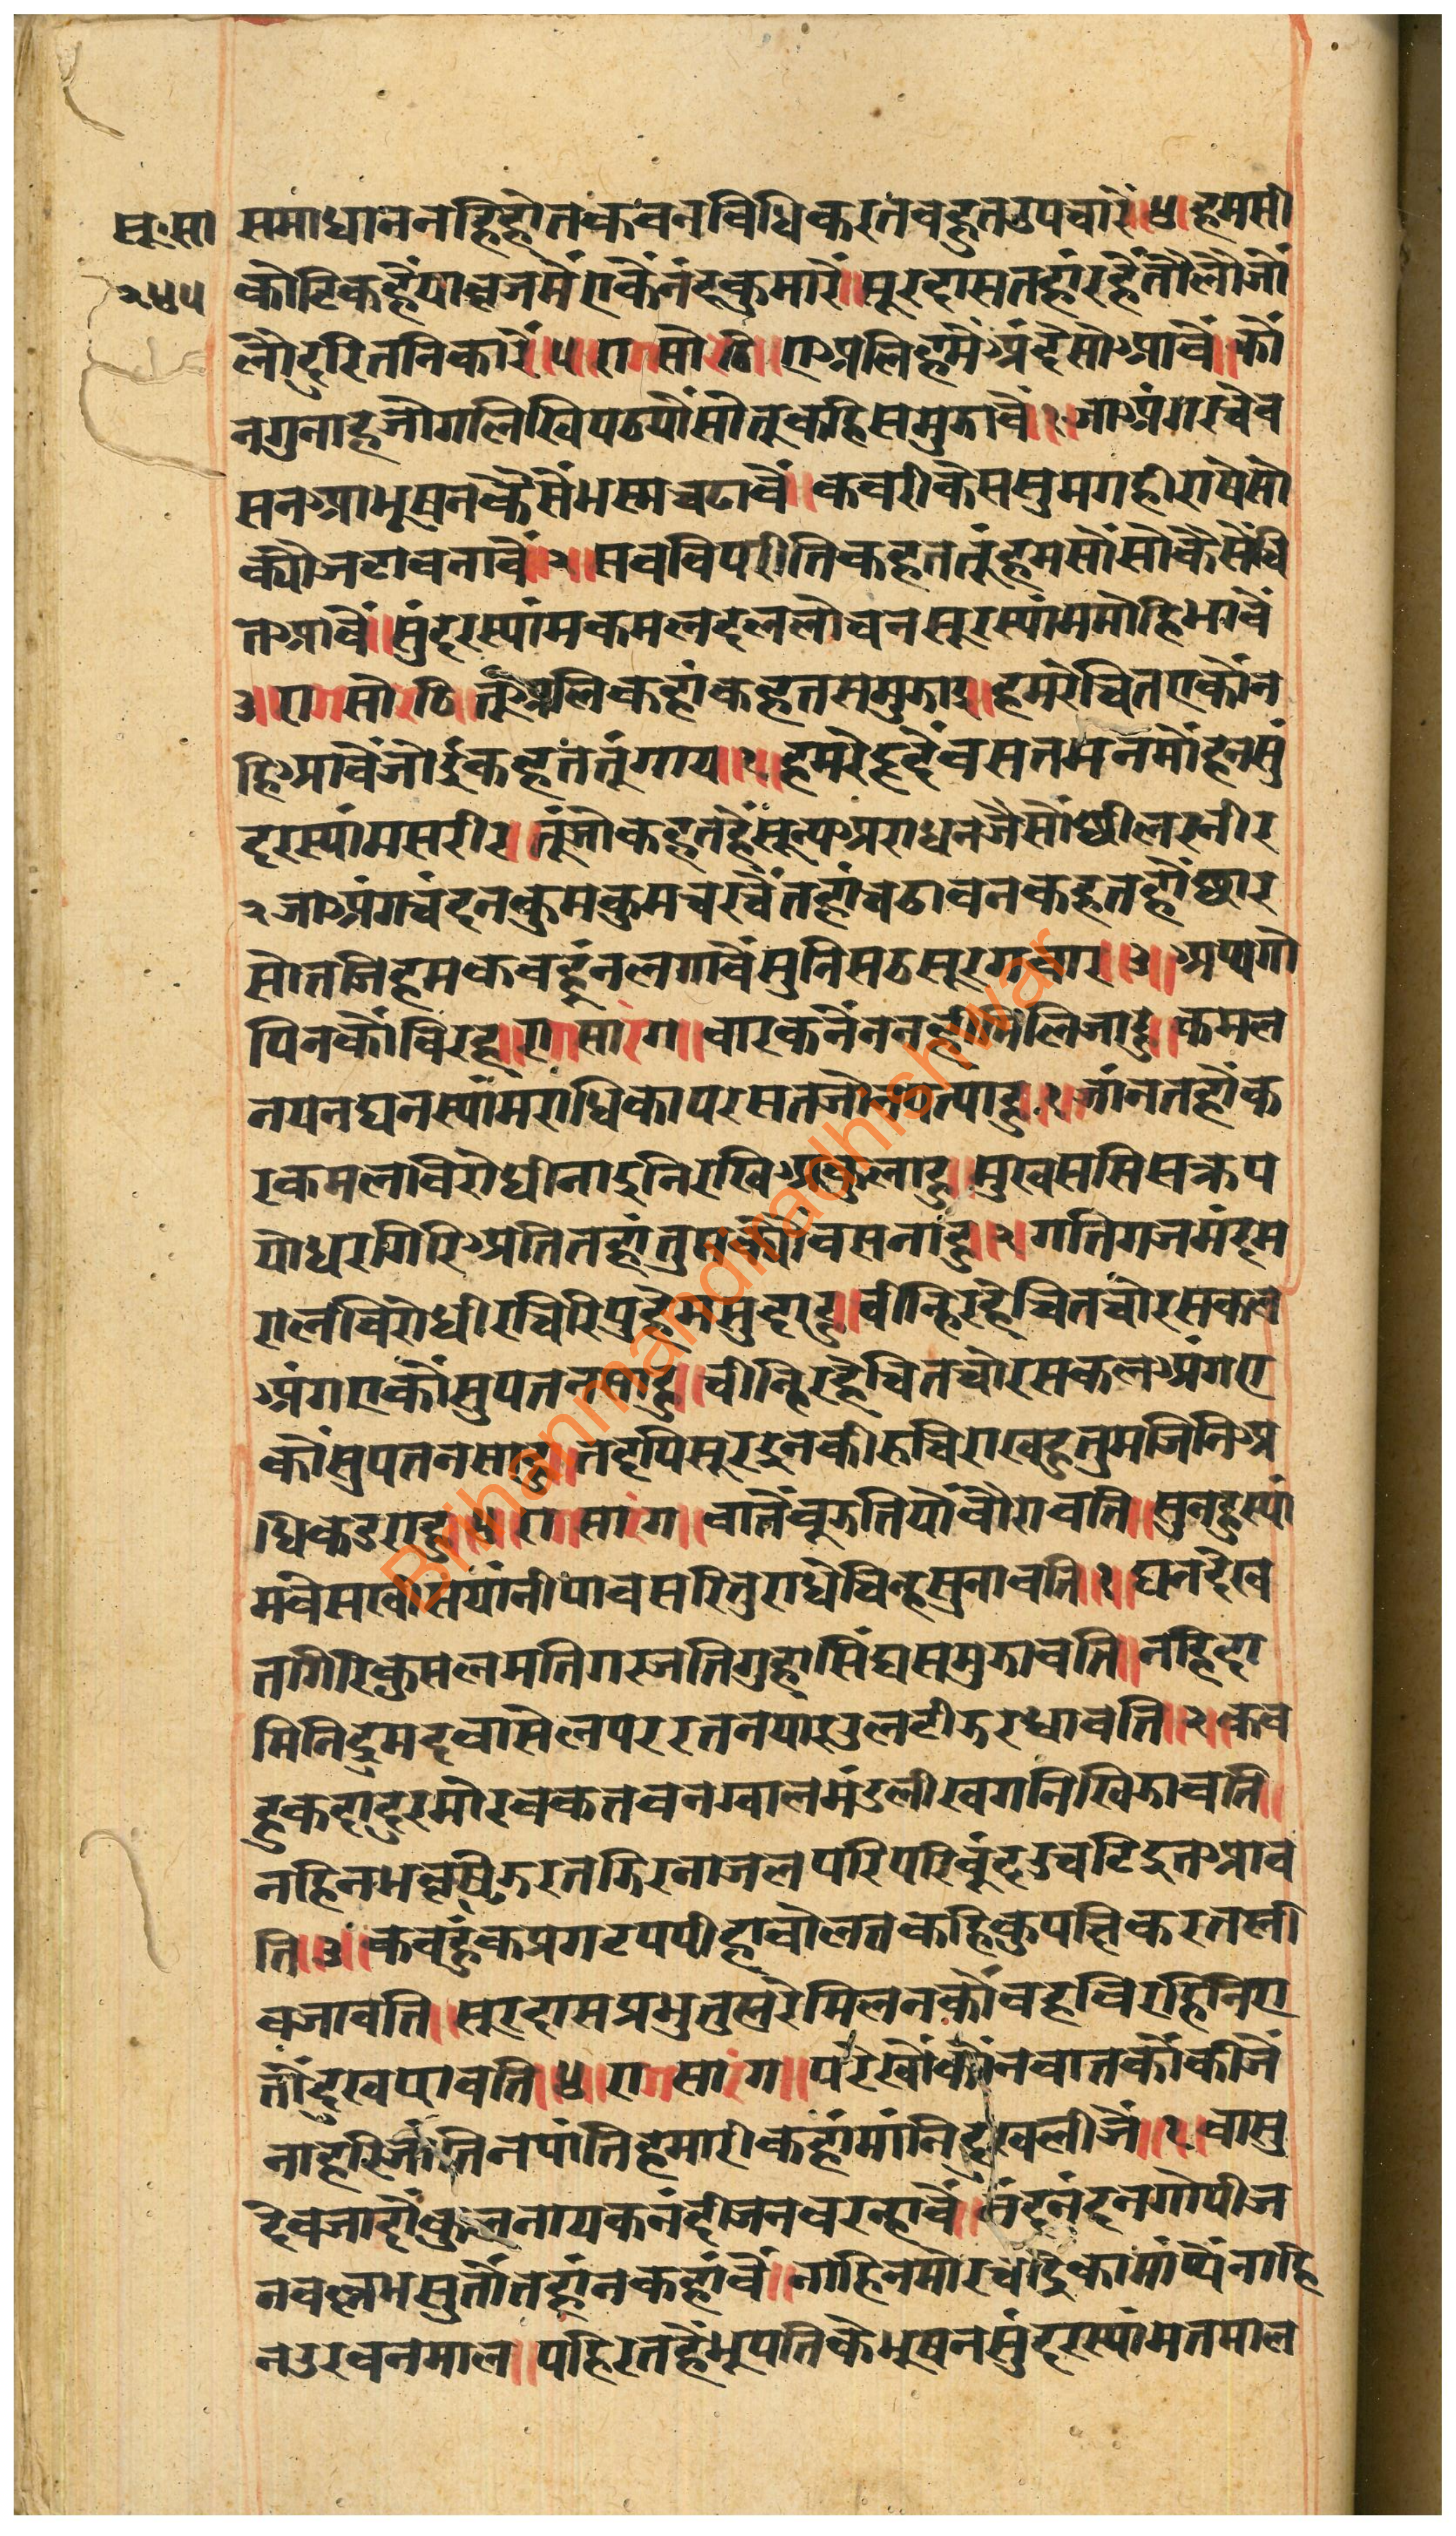 सू.सा
२४५
समाधाननहिहोतकवनविधिकरतबहुतउपचारैं॥४॥हमसी
कोटिकहैंयाव्रजमैंएकैंनंदकुमारैं॥सूरदासतहांरहैंतौलौजौ
लौदूरितनिकारैं॥५॥रागसोरठि॥एअलिहमैंअंदेसोआवैं॥कौं
नगुनाहजोगलिखिपठयौंसोतूकहिसमुझावैं॥१॥जाअंगरचेब
सनआभूषनकैसैंभस्मचढावैं॥कवरीकेससुमगहीराषेसो
क्यौजटाबनावैं॥२॥सबविपरीतिकहततूंहमसौंसोकैसेंचि
तआवैं॥सुंदरस्यांमकमलदललोचनसूरस्यांममोहिभावैं
३॥रागसोरठि॥तूंअलिकहांकहतसमुझाइ॥हमरेचितएकौंन
हिआवैंजोईकहततूंगाय॥१॥हमरेहृदैंबसतमनमोंहनसुं
दरस्यांमसरीर॥तूंजोकहतहैंसून्यअराधनजैसौंछीलरनीर
२जाअंगचंदनकुमकुमचरचैंतहांचढावनकहतहौंछार
सोतजिहमकबहूंनलगावैंसुनिसठसूरगवार॥३॥अथगो
पिनकौविरह॥रागसारंग॥बारकनैंननहींमिलिजाहु॥कमल
नयनघनस्यांमराधिकापरसतजोनपत्याहु॥१॥जांनतहौंक
रकमलविरोधीनाइनिरखिअकुलाहु॥मुखससिसत्रुप
योधरगिरिअतितहांतुमक्यौंबसनांहु॥२॥गतिगजमंदम
रालविरोधीरविरिपुहेमसुदाहु॥चीन्हिरहेचितचोरसकल
अंगएकौंसुपतनसाहु॥चीन्हिरहेचितचोरसकलअंगए
कौंसुपतनसाहु॥तदपिसूरइनकीरुचिराखहुतुमजिनिअ
धिकडराहु॥४॥रागसारंग॥बातैंबूझतियौंबौरावति॥सुनहुस्यां
मवेसखीसयांनीपावसरितुराधेचिन्हसुनावति॥१॥घनदेख
तगिरिकुसलमतिगरजतिगुहासिंघसमुझावति॥नहिदा
मिनिद्रुमदवासेलपररतनयारउलटीझरधावति॥२॥कब
हुकदादुरमोरबकतबनग्वालमंडलीखगनिखिझावति॥
नहिनभवृष्टिझरतझिरनाजलपरिपरिबूंदउचटिइतआव
ति॥३॥कबहुंकप्रगटपपीहाबोलतकहिकुपछिकरतली
बजावति॥सूरदासप्रभुतुह्मरेमिलनकौंवहविरहिनिए
तौंदुखपावति॥४॥रागसारंग॥परेखौंकौंनबातकौंकीजैं
नाहरिजातिनपांतिहमारीकहांमांनिदुखलीजैं॥१॥बासु
देवजादौंकुलनायकनंदीजनबरन्हावैं॥नंदनंदनगोपीज
नबल्लभसुतौंतहांनकहांवैं॥नाहिनमोरचंद्रिकामांथैंनाहि
नउरबनमाल॥पहिरतहैंभूपतिकेभूषनसुंदरस्यांमतमाल